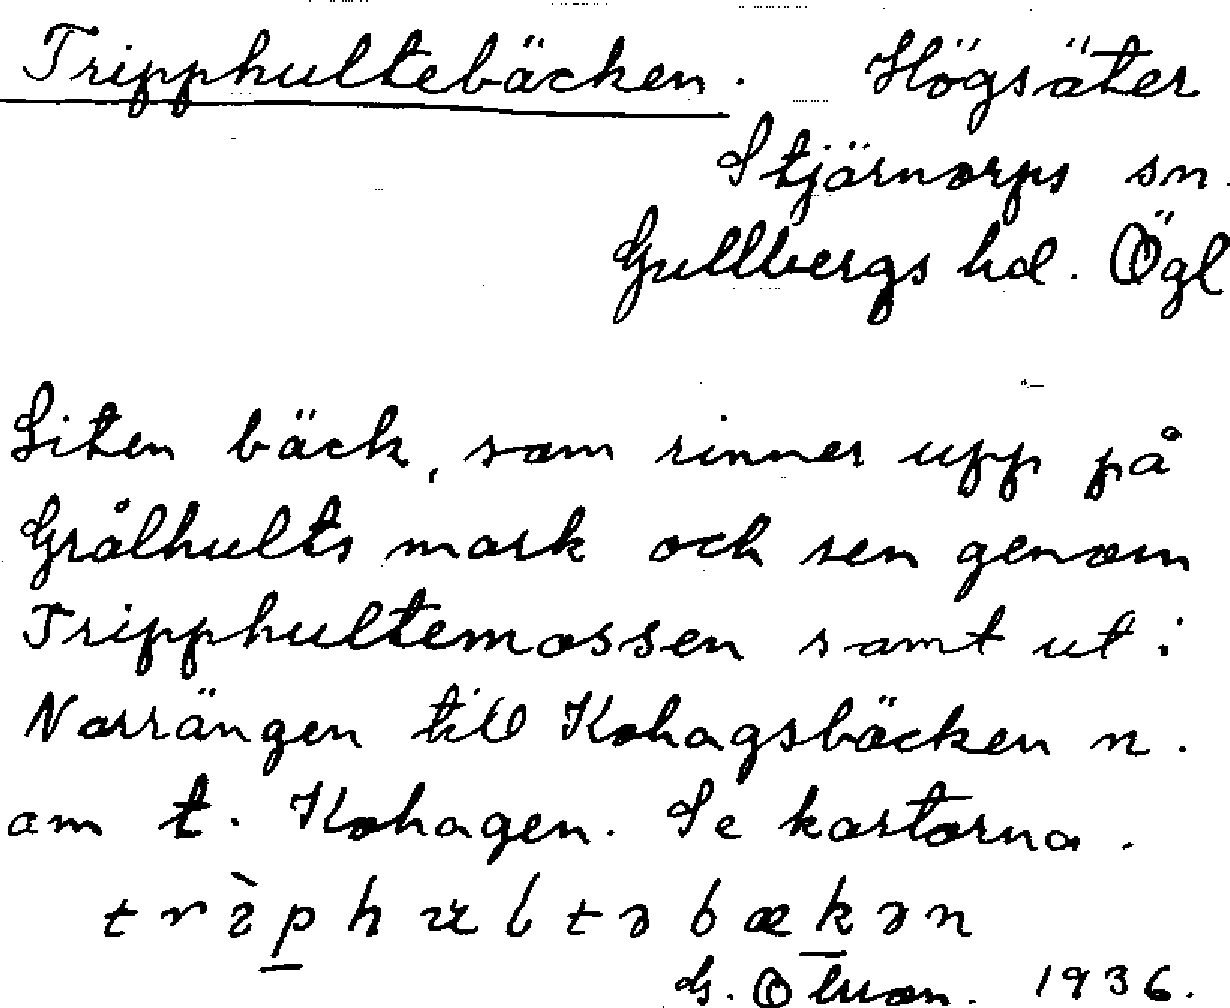 Tripphultebäcken. Högsäter
Stjärnorps sn.
Gullbergs hd. Ögl
Liten bäck, som rinner upp på
Grålhults mark och sen genom
Tripphultemossen samt ut i
Norrängen till Kohagsbäcken n.
om t. Kohagen. Se kartorna.
G. 1936.